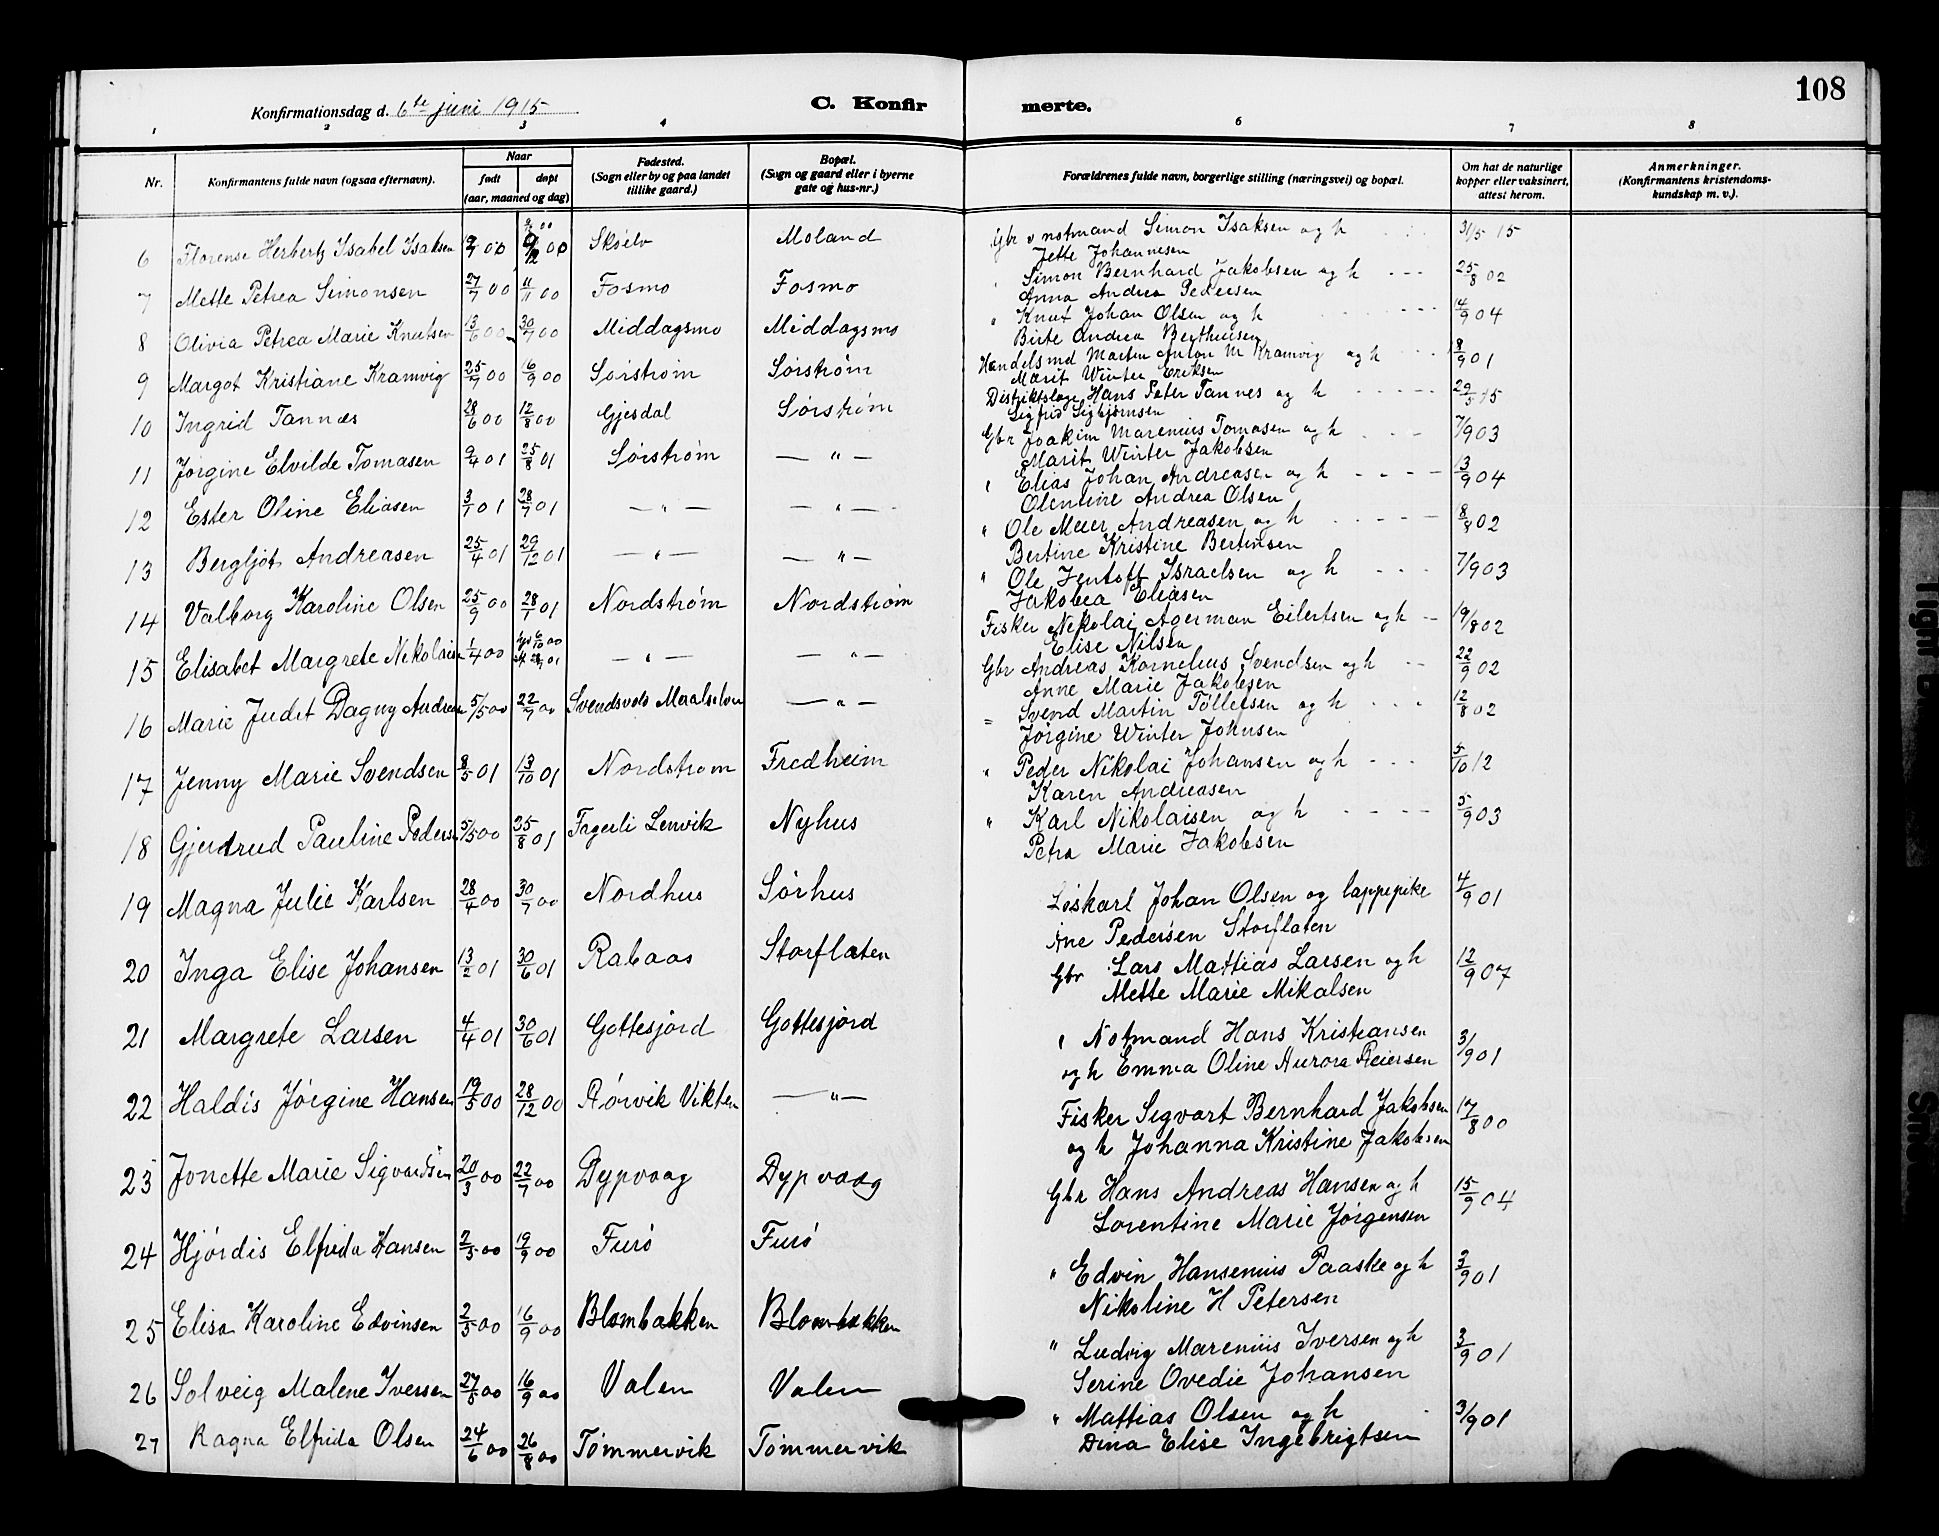 108
Konfirmationsdag d. 6te juni 1915
C. Konfirmerte.
1 2 3 4 6 7 8
Nr.
Konfirmantens fulde navn (ogsaa efternavn).
Naar
født døpt
(aar, maaned og dag)
Fødested.
(Sogn eller by og paa landet
tillike gaard.)
Bopæl.
(Sogn og gaard eller i byerne
gate og hus-nr.)
Forældrenes fulde navn, borgerlige stilling (næringsvei) og bopæl.
Om hat de naturlige
kopper eller vaksinert,
attest herom.
Anmerkninger.
(Konfirmantens kristendoms-
kundskap m. v.)
6 Florense Herbertz Isabel Isaksen Moland Gbr o notmand Simon Isaksen og h 3/5 15
Jette Johannesen
7 Mette Petrea Simonsen 27/7 00 11/11 00 Fosmo Fosmo Simon Bernhard Jakobsen og h 25/8 02
Anna Andrea Pedersen
8 Olivia Petrea Marie Knutsen 13/6 00 30/7 00 Middagsmo Middagsmo " Knut Johan Olsen og h 14/9 04
Birte Andrea Bertheusen
9 Margot Kristiane Kramvig 25/7 00 16/9 00 Sørstrøm Sørstrøm Handelsmd Marten Anton M Kramvig og h 8/9 01
Marit Winter Eriksen
10 Ingrid Tannæs 28/6 00 12/8 00 Gjesdal Sørstrøm Distriktslæge Hans Peter Tannes og h 29/5 15
Sigfrid Sigbjørnsen
11 Jørgine Elvilde Tomasen 9/4 01 25/8 01 Sørstrøm — " — Gbr Joakim Marenius Tomasen og h 7/9 03
Marit Winter Jakobsen
12 Ester Oline Eliasen 3/7 01 28/7 01 — " — — " — " Elias Johan Andreasen og h 13/9 04
Olentine Andrea Olsen
13 Bergljot Andreasen 25/4 01 29/12 01 — " — — " — " Ole Meier Andreasen og h 8/8 02
Bertine Kristine Bertinsen
14 Valborg Karoline Olsen 25/7 00 28/7 01 Nordstrøm Nordstrøm " Ole Jentoft Israelsen og h 7/9 03
Jakobea Eliasen
15 Elisabet Margrete Nikolaisen 1/4 00 — " — — " — Fisker Nikolai Agerman Eilertsen og h 19/8 02
Elise Nilsen
16 Marie Judit Dagny Andreas 5/5 00 22/7 00 Svendsvols Maalselven — " — Gbr Andreas Kornelius Svendsen og h 22/9 02
Anne Marie Jakobsen
17 Jenny Marie Svendsen 8/5 01 13/10 01 Nordstrøm Fredheim " Svend Martin Tollefsen og h 12/8 02
Jørgine Winter Johnsen
18 Gjertrud Pauline Peders 5/5 00 25/8 01 Fagerli Lenvik Nyhus " Peder Nikolai Johansen og h 5/10 12
Karen Andreasen
19 Magna Julie Karlsen 28/4 00 30/7 00 Nordhus Sørhus " Karl Nikolaisen og h 5/9 03
Petra Marie Jakobsen
20 Inga Elise Johansen 13/2 01 30/6 01 Rabaas Storflaten Løskarl Johan Olsen og lappepike 4/9 01
Ane Pedersen Storflaten
21 Margrete Larsen 4/4 01 30/6 01 Gottesjord Gottesjord Gbr Lars Mattias Larsen og h 12/9 07
Mette Marie Mikalsen
22 Haldis Jørgine Hansen 19/5 00 28/12 00 Rørvik Vikten — " — " Notmand Hans Kristiansen 3/9 01
og h Emma Oline Aurora Reiersen
23 Jonette Marie Sigvardsen 20/3 00 22/7 00 Dypvaag Dypvaag Fisker Sigvart Bernhard Jakobsen 17/8 00
og h Johanna Kristine Jakobsen
24 Hjørdis Elfrida Hansen 2/5 00 19/9 00 Furø Furø Gbr Hans Andreas Hansen og h 15/9 04
Lorentine Marie Jørgensen
25 Elisa Karoline Edvinsen 2/5 00 16/9 00 Blombakken Blombakken " Edvin Hansenius Paaske og h 3/9 01
Nikoline H Petersen
26 Solveig Malene Iversen 27/5 00 16/9 00 Valen Valen " Ludvig Marenius Iversen og h 3/9 01
Serine Ovedie Johansen
27 Ragna Elfrida Olsen 24/6 00 26/8 00 Tømmervik Tømmervik " Mattias Olsen og h 3/9 01
Dina Elise Ingebrigtsen